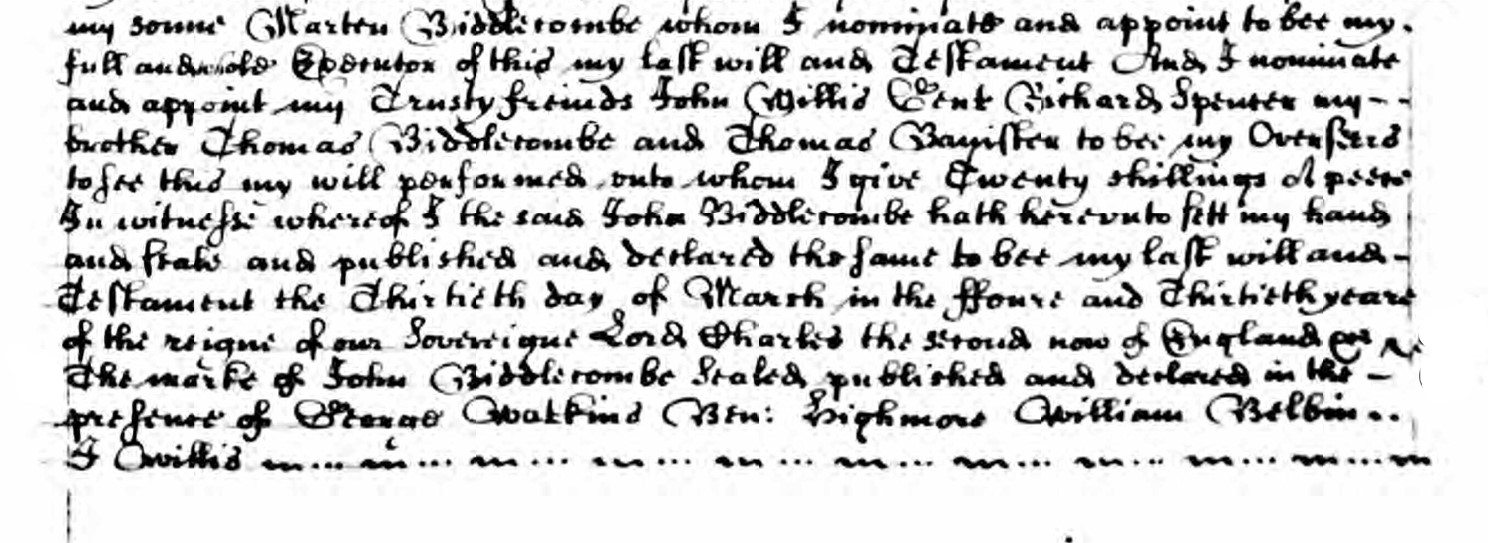 my sonne Marten Biddlecombe whom I nominate and appoint to bee my
full and sole Executor of this my last will and Testament And I nominate
and appoint my Trusty freinds John Willis Gent Richard Spencer my - -
brother Thomas Biddlecombe and Thomas Banister to bee my Overseers
to see this my will performed unto whom I give Twenty shillings a peece
In witnesse whereof I the said John Biddlecombe hath herevnto sett my hand
and seale and published and declared the same to bee my last will and -
Testament the Thirtieth day of March in the ffoure and Thirtieth yeare
of the reigne of our Sovereigne Lord Charles the second now of England
The marke of John Biddlecombe Sealed published and declared in the -
presence of George Watkins Ben: Highmore William Belbin ..
J Willis